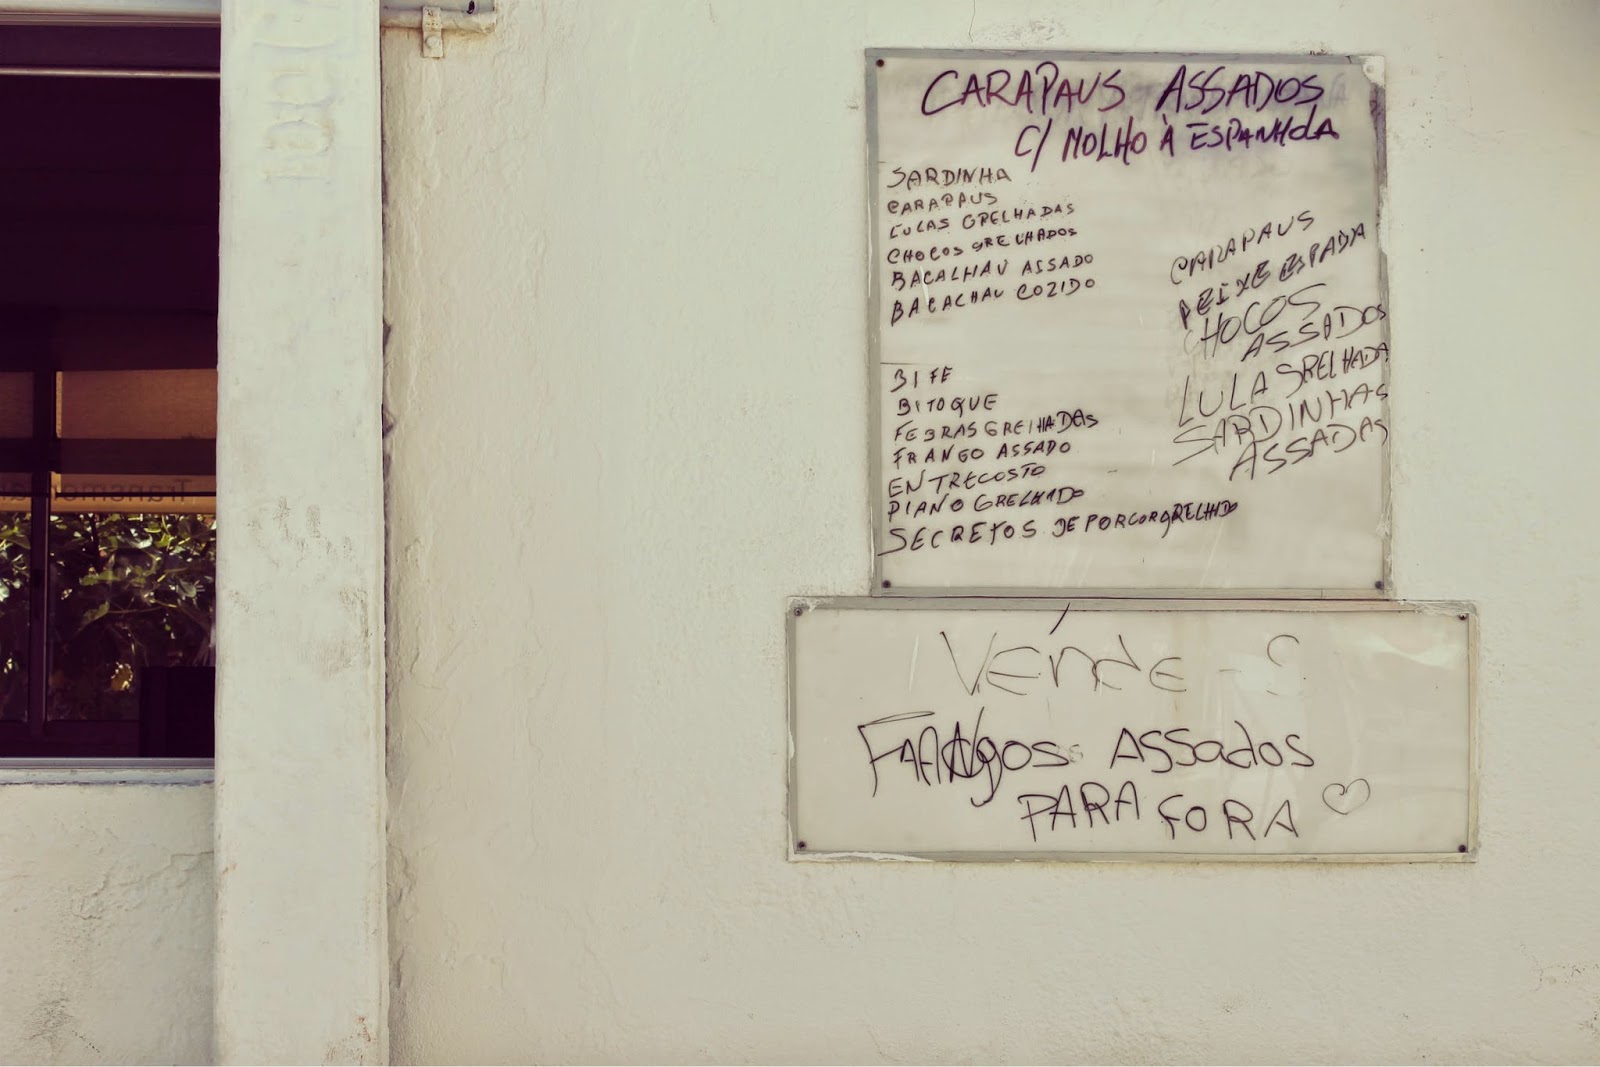 CARAPAUS ASSADOS
C/ MOLHO À ESPANHOLA
SARDINHA
CARAPAUS
LULAS GRELHADAS
CHOCOS GRELHADOS
BACALHAU ASSADO
BACALHAU COZIDO
BIFE
BITOQUE
FEBRAS GRELHADAS
FRANGO ASSADO
ENTRECOSTO
PIANO GRELHADO
SECRETOS DE PORCO GRELHADO
CARAPAUS
PEIXE ESPADA
CHOCOS
ASSADOS
LULA GRELHADA
SARDINHAS
ASSADAS
Vende-S
FRANGOS ASSados
PARA FORA